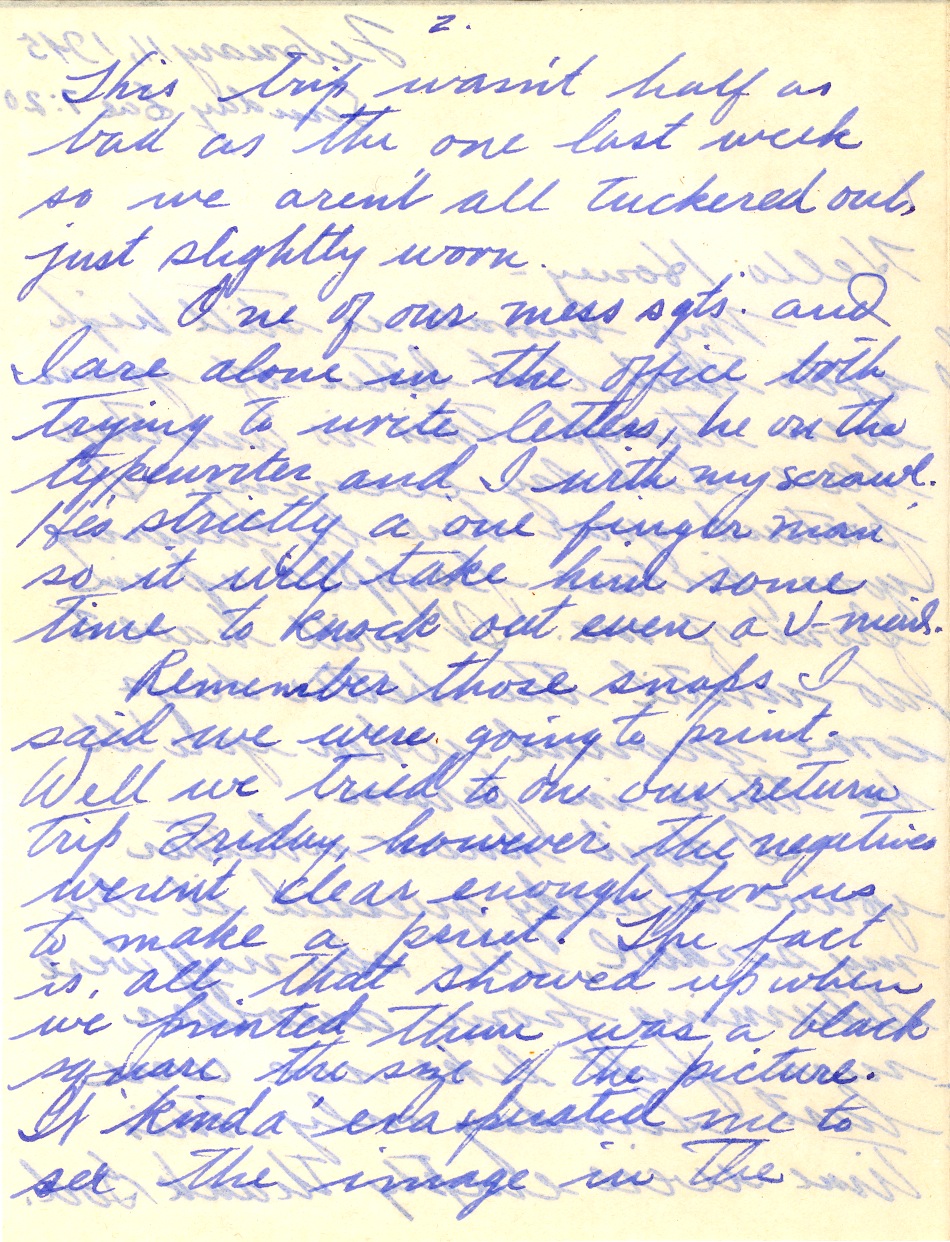 2.
This trip wasn't half as
bad as the one last week
so we aren't all tuckered out,
just slightly worn.
One of our mess sgts. and
I are alone in the office both
trying to write letters, he on the
typewriter and I with my scrawl.
He's strictly a 'one finger man'
so it will take him some
time to knock out even a V-mail.
Remember those snaps I
said we were going to print.
Well we tried to on our return
trip Friday, however the negatives
weren't clear enough for us
to make a print. The fact
is, all that showed up when
we printed them was a black
square the size of the picture.
It 'kinda' exasperated me to
see the image in the